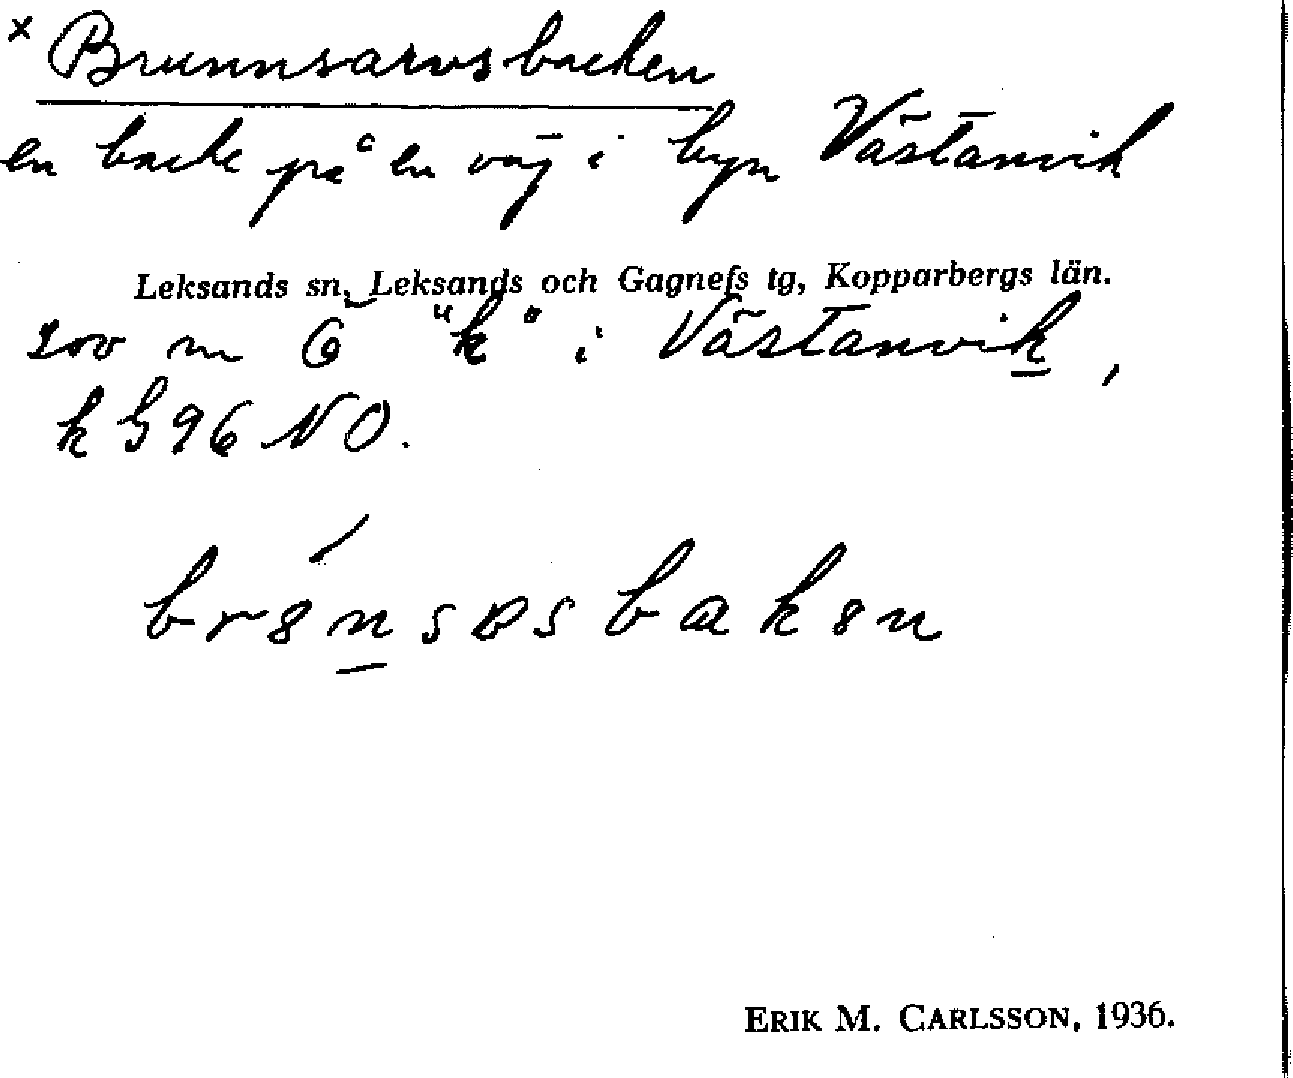 x Brunnsarvsbacken
en backe på en väg i byn Västanvik
Leksands sn, Leksands och Gagnefs tg, Kopparbergs län.
200 m Ö "k" i Västanvik,
k G 96 NO.
ERIK M. CARLSSON, 1936.